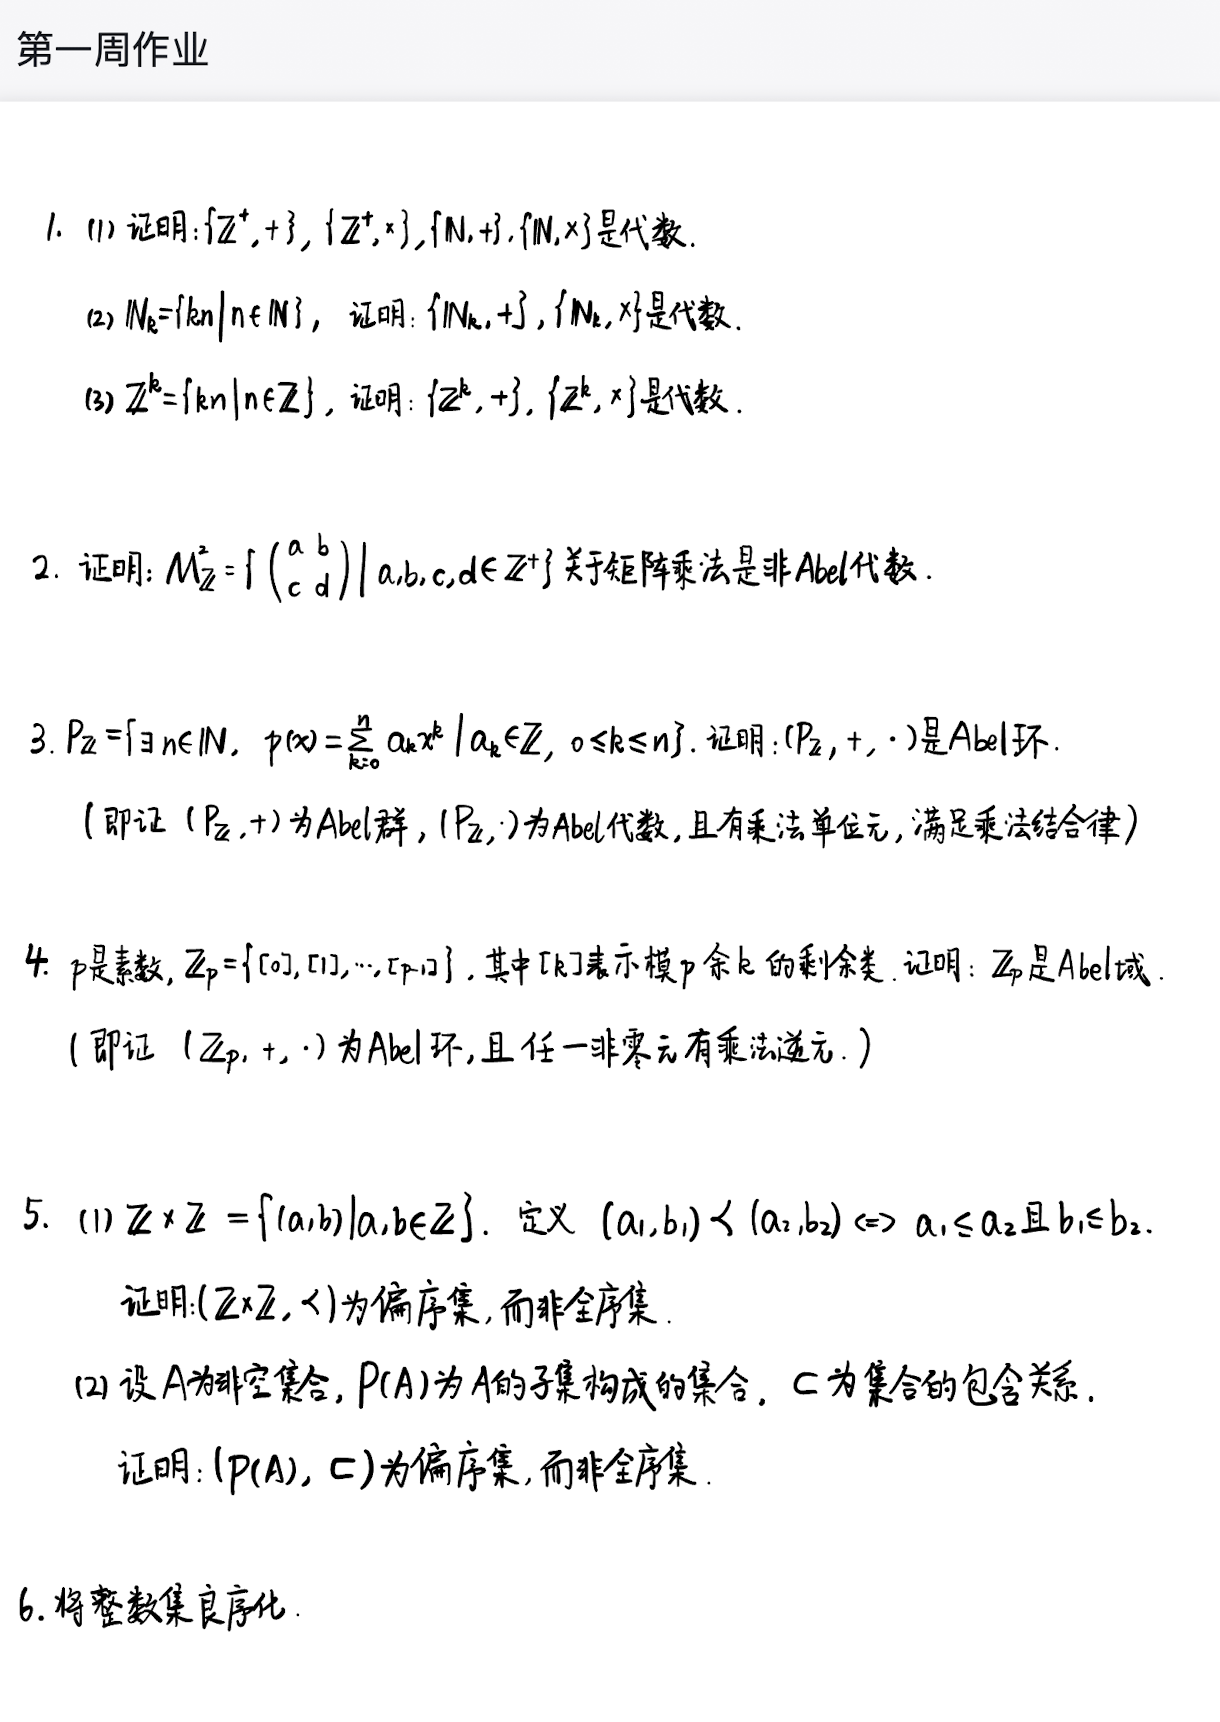 第一周作业
1. (1) 证明:{ℤ⁺,+}, {ℤ⁺,×},{ℕ,+},{ℕ,×}是代数.
(2) ℕₖ={kn|n∈ℕ}, 证明:{ℕₖ,+},{ℕₖ,×}是代数.
(3) ℤᵏ={kn|n∈ℤ}, 证明:{ℤᵏ,+}, {ℤᵏ,×}是代数.
2. 证明: M²_ℤ={(a b; c d)|a,b,c,d∈ℤ⁺}关于矩阵乘法是非Abel代数.
3. P_ℤ={∃n∈ℕ, p(x)=∑_{k=0}^{n} aₖxᵏ|aₖ∈ℤ, 0≤k≤n}.证明:(P_ℤ,+,·)是Abel环.
(即证 (P_ℤ,+)为Abel群,(P_ℤ,·)为Abel代数,且有乘法单位元,满足乘法结合律)
4. p是素数, ℤₚ={[0],[1],…,[p-1]}, 其中[k]表示模p余k的剩余类.证明: ℤₚ是Abel域.
(即证 (ℤₚ,+,·)为Abel环,且任一非零元有乘法逆元.)
5. (1) ℤ×ℤ={(a,b)|a,b∈ℤ}. 定义 (a₁,b₁)≺(a₂,b₂)⇔a₁≤a₂且b₁≤b₂.
证明:(ℤ×ℤ,≺)为偏序集,而非全序集.
(2) 设A为非空集合, P(A)为A的子集构成的集合, ⊂为集合的包含关系.
证明:(P(A),⊂)为偏序集,而非全序集.
6. 将整数集良序化.